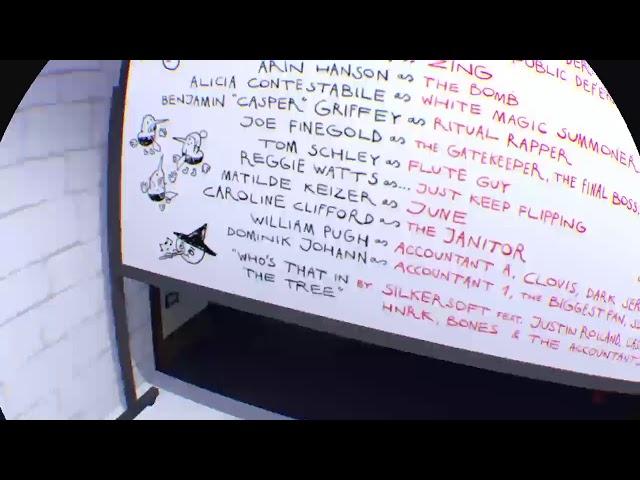 ZING PUBLIC DEFEN
ARIN HANSON as THE BOMB
ALICIA CONTESTABILE as WHITE MAGIC SUMMONER
BENJAMIN "CASPER" GRIFFEY as RITUAL RAPPER
JOE FINEGOLD as THE GATEKEEPER, THE FINAL BOSS
TOM SCHLEY as FLUTE GUY
REGGIE WATTS as... JUST KEEP FLIPPING
MATILDE KEIZER as JUNE
CAROLINE CLIFFORD as THE JANITOR
WILLIAM PUGH as ACCOUNTANT A, CLOVIS, DARK SER
DOMINIK JOHANN as ACCOUNTANT 1, THE BIGGEST FAN,
"WHO'S THAT IN BY SILKERSOFT FEAT. JUSTIN ROILAND,
THE TREE" HNRK, BONES & THE ACCOUNTANT